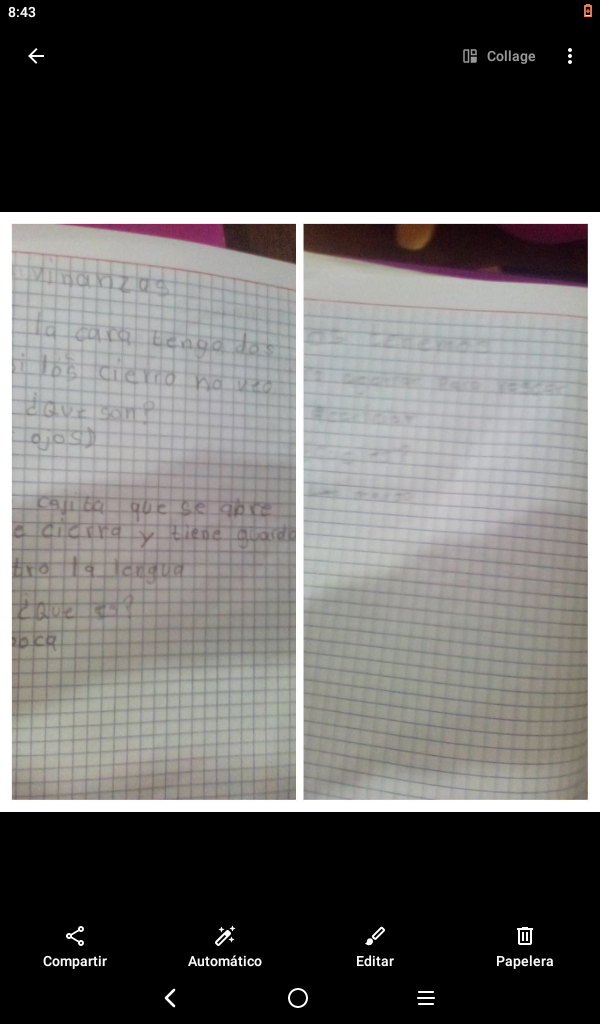 8:43
Collage
vinanzas
la cara tengo dos
si los cierro no veo
¿Que son?
ojos)
cajita que se abre
e cierra y tiene guarda
tro la lengua
¿Que es?
boca
os tenemos
Compartir
Automático
Editar
Papelera